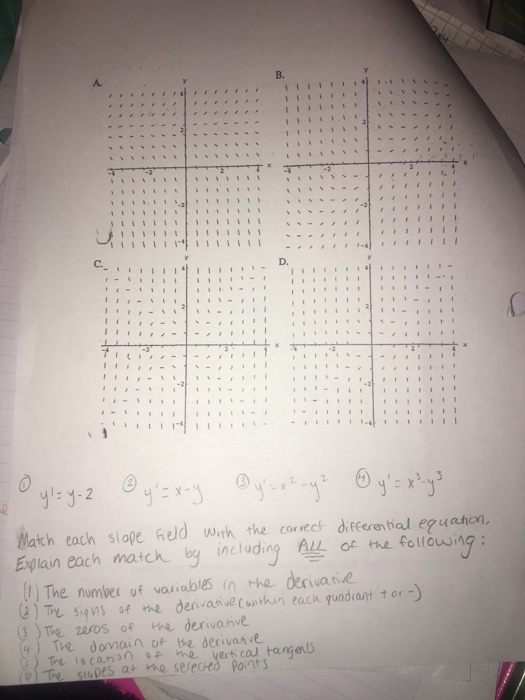 A.
B.
y
y
4
4
2
2
-4
-2
2
4
x
-4
-2
2
4
x
-2
-2
-4
-4
C.
D.
y
y
4
4
2
2
-4
-2
2
4
x
-4
-2
2
4
x
-2
-2
-4
-4
① y' = y-2 ② y' = x-y ③ y' = x²-y² ④ y' = x³-y³
Match each slope field with the correct differential equation.
Explain each match by including ALL of the following:
(1) The number of variables in the derivative
(2) The signs of the derivative (within each quadrant + or -)
(3) The zeros of the derivative
(4) The domain of the derivative
(5) The location of the vertical tangents
(6) The slopes at the selected points